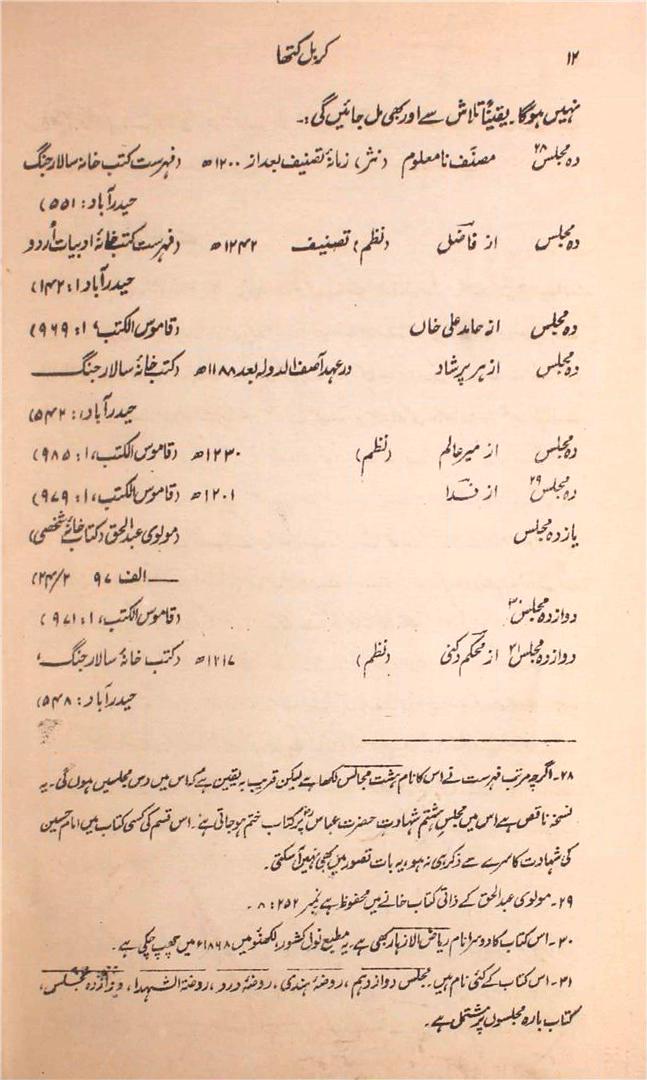 ۱۲ کربل کتھا
نہیں ہوگا۔ یقیناً تلاش سے اور بھی مل جائیں گی:۔
دہ مجلس۲۸ مصنّف نامعلوم (نثر) زمانۂ تصنیف بعد از ۱۲۰۰ھ (فہرست کتب خانہ سالار جنگ
حیدرآباد: ۵۵۱)
دہ مجلس از فاضلؔ (نظم) تصنیف ۱۲۴۲ھ (فہرست کتبخانۂ ادبیات اُردو
حیدرآباد ۱: ۱۴۲)
دہ مجلس از حامد علی خاں (قاموس الکتب، ۱: ۹۶۹)
دہ مجلس از ہر پرشاد در عہد آصف الدولہ بعد ۱۱۸۸ھ (کتب خانۂ سالار جنگ
حیدرآباد: ۵۴۲)
دہ مجلس از میر عالم (نظم) ۱۲۳۰ھ (قاموس الکتب، ۱: ۹۸۵)
دہ مجلس۲۹ از فداؔ ۱۲۰۱ھ (قاموس الکتب، ۱: ۹۷۹)
یازدہ مجلس (مولوی عبدالحق (کتاب خانۂ شخصی)
— الف ۹۷ ۲۴/۲)
دوازدہ مجلس۳۰ (قاموس الکتب، ۱: ۹۷۱)
دوازدہ مجلس۳۱ از محکمؔ دکنی (نظم) ۱۲۱۷ھ (کتب خانۂ سالار جنگ،
حیدرآباد: ۵۴۸)
۲۸۔ اگرچہ مرتب فہرست نے اس کا نام ہشت مجالس لکھا ہے لیکن قریب بہ یقین ہے کہ اس میں دس مجلسیں ہوں گی۔ یہ
نسخہ ناقص ہے اس میں مجلسِ ہشتم شہادتِ حضرت عباسؓ پر کتاب ختم ہو جاتی ہے۔ اس قسم کی کسی کتاب میں امام حسین
کی شہادت کا سرے سے ذکر ہی نہ ہو، یہ بات تصور میں بھی نہیں آسکتی۔
۲۹۔ مولوی عبدالحق کے ذاتی کتاب خانے میں محفوظ ہے نمبر ۲۵۲: ۸۔
۳۰۔ اس کتاب کا دوسرا نام ریاض الازہار بھی ہے۔ یہ مطبع نول کشور لکھنؤ میں ۱۸۶۸ء میں چھپ چکی ہے۔
۳۱۔ اس کتاب کے کئی نام ہیں۔ مجلس دوازدہم، روضۂ ہندی، روضۂ درو، روضۃ الشہدا، و دوازدہ مجلس،
کتاب بارہ مجلسوں پر مشتمل ہے۔